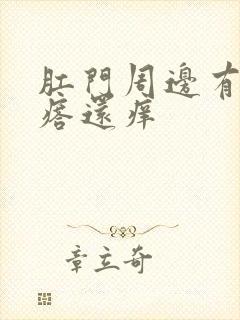 肛門周邊有
瘩還痒
章立奇